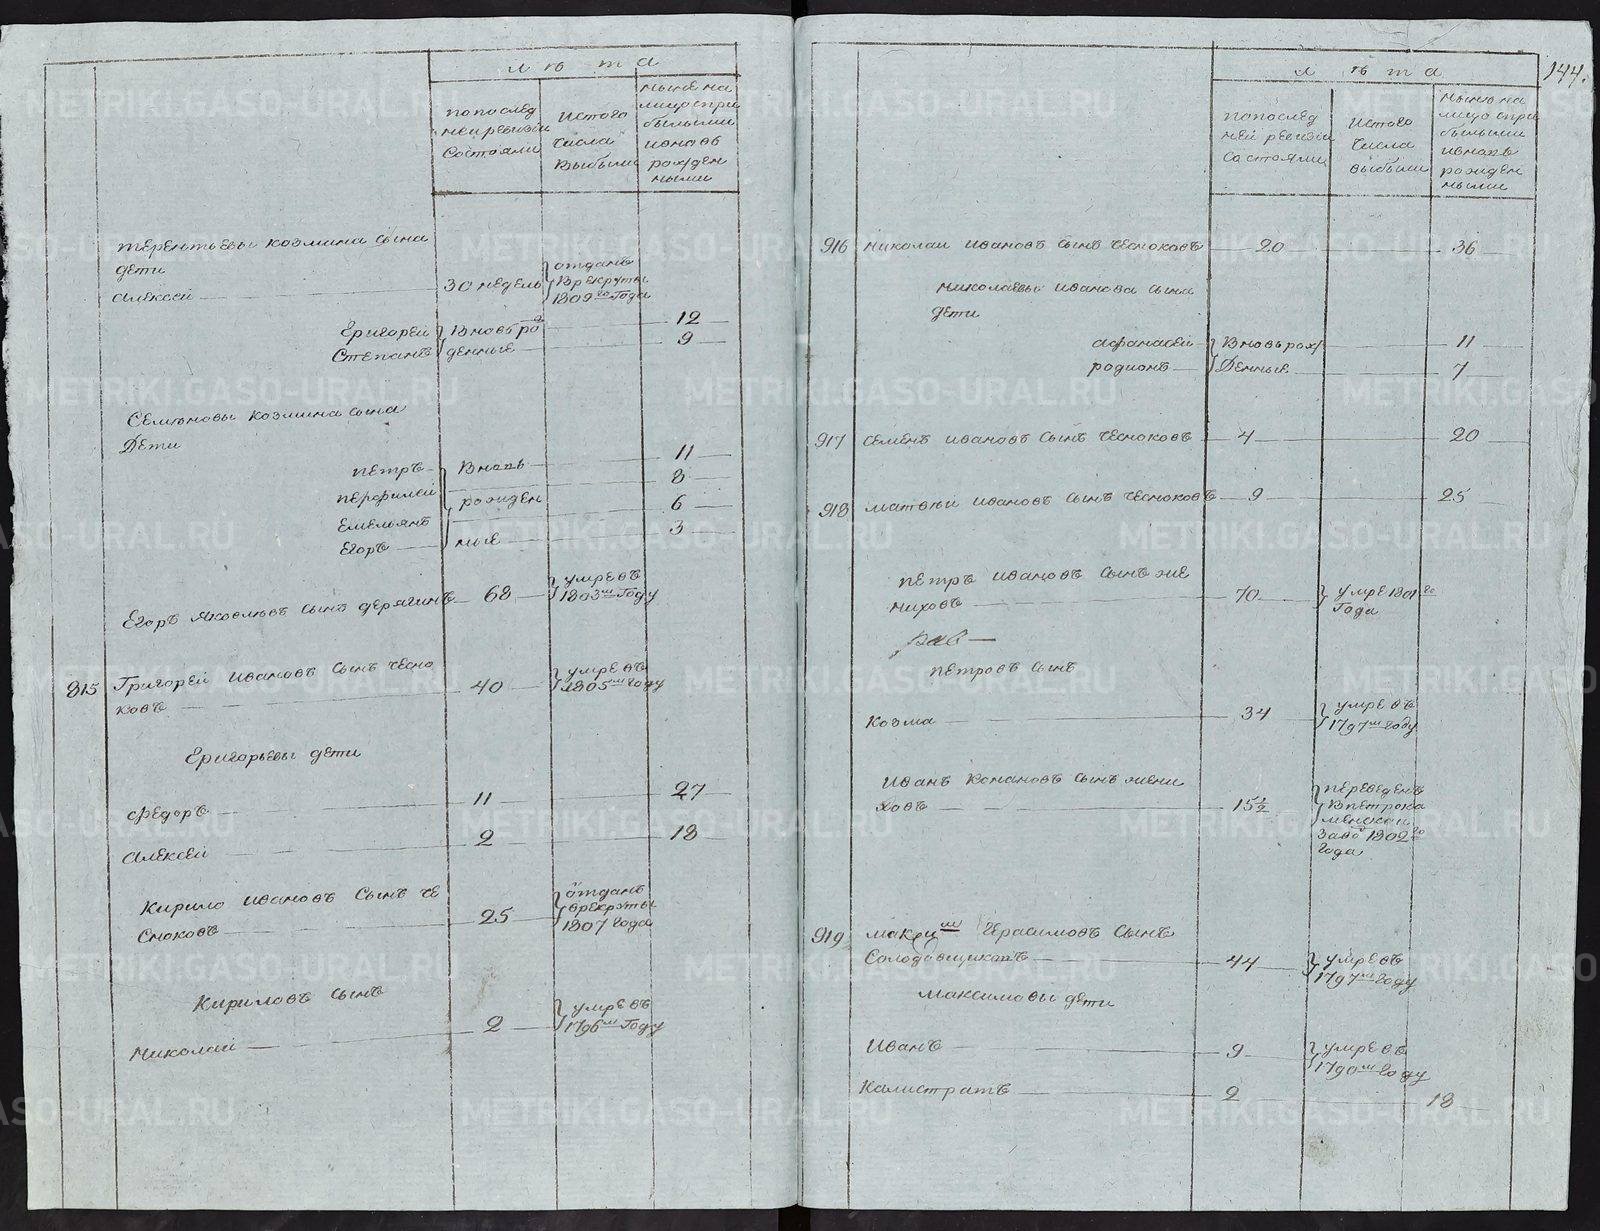 лѣта
по послед
ней ревизіи
состояли
ис того
числа
выбыли
ныне на
лицо с при
былыми
и вновь
рожден
ными
терентьевы козмина сына
дети
алексей 30 недель отданъ
в рекруты
1809го года
Григорей вновь ро 12
Степанъ жденные 9
Семеновы козмина сына
дети
петръ вновь 11
перфилей рожден 8
Емельянъ ные 6
Егоръ 3
Егоръ яковлевъ сынъ дерягинъ 68 умре въ
1803м году
815 Григорей ивановъ сынъ чесно
ковъ 40 умре въ
1805м году
Григорьевы дети
федоръ 11 27
алексей 2 18
Кирило ивановъ сынъ че
сноковъ 25 отданъ
в рекруты
1807 года
Кириловъ сынъ
николай 2 умре въ
1796м году
144.
лѣта
по послед
ней ревизіи
состояли
ис того
числа
выбыли
ныне на
лицо с при
былыми
и вновь
рожден
ными
916 николай ивановъ сынъ чесноковъ 20 36
николаевы иванова сына
дети
афанасей вновь рож 11
родионъ денные 7
917 семенъ ивановъ сынъ чесноковъ 4 20
918 матвей ивановъ сынъ чесноковъ 9 25
петръ ивановъ сынъ же
ниховъ 70 умре 1801го
года
петровъ сынъ
козма 34 умре въ
1797м году
иванъ сынъ жени
ховъ 15½ переведенъ
в петрока
менской
заво 1802го
года
919 макси м герасимовъ сынъ
Солодовщиковъ 44 умре въ
1797м году
максимовы дети
иванъ 9 умре въ
1790м году
калистратъ 2 18
METRIKI.GASO-URAL.RU